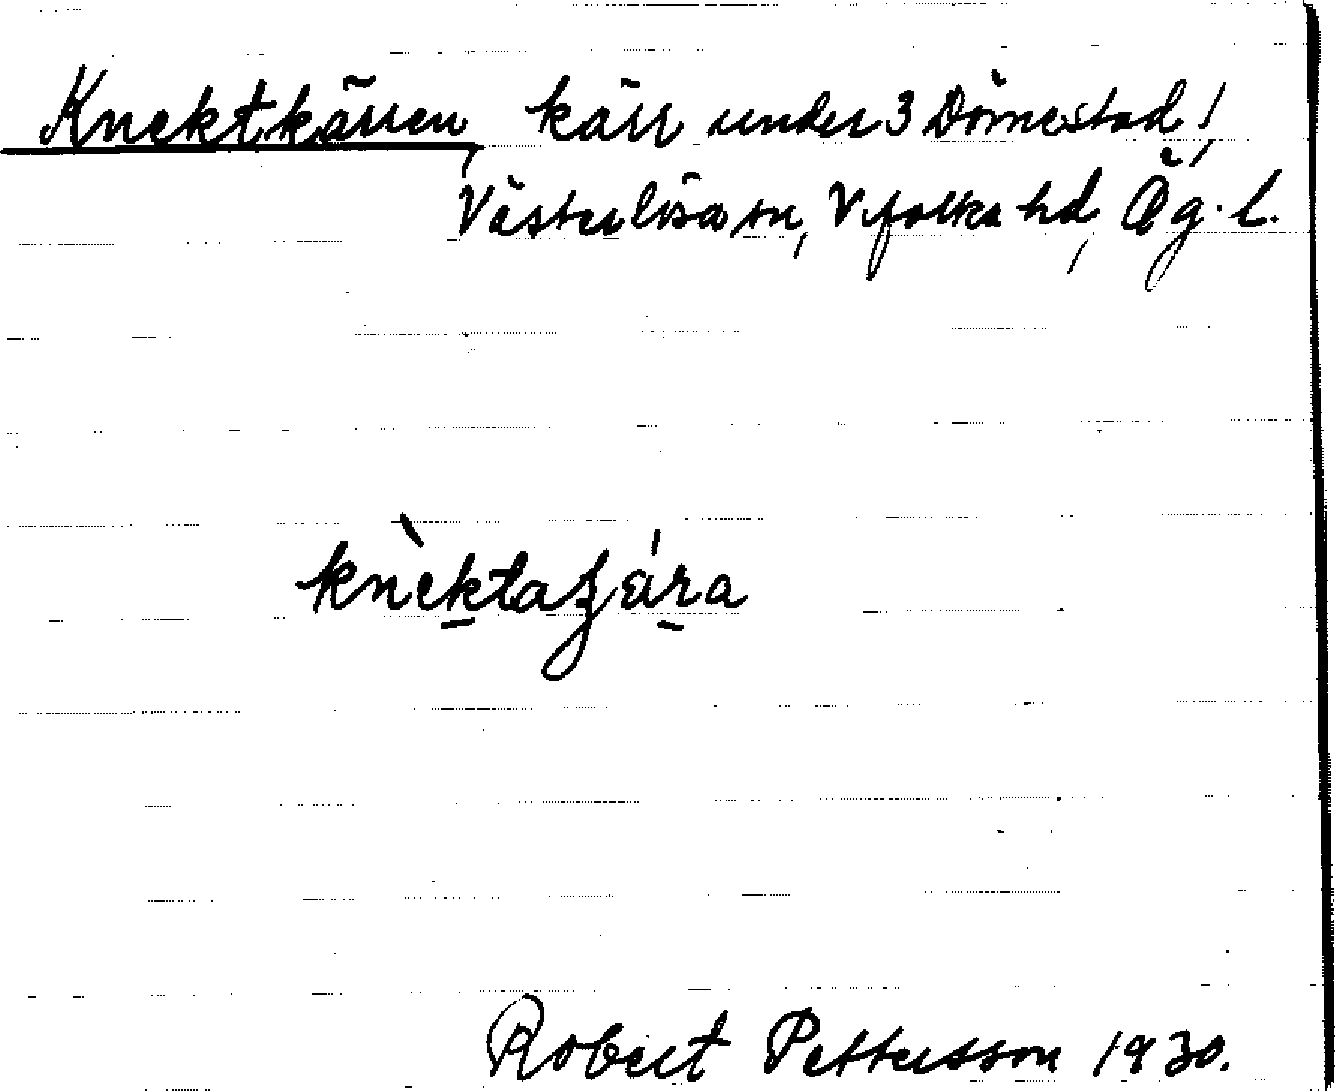 Knektkärren, kärr under 3 Dömestad,
Västerlösa sn, Vifolka hd, Ög. l.
knèktaʒára
Robert Pettersson 1930.